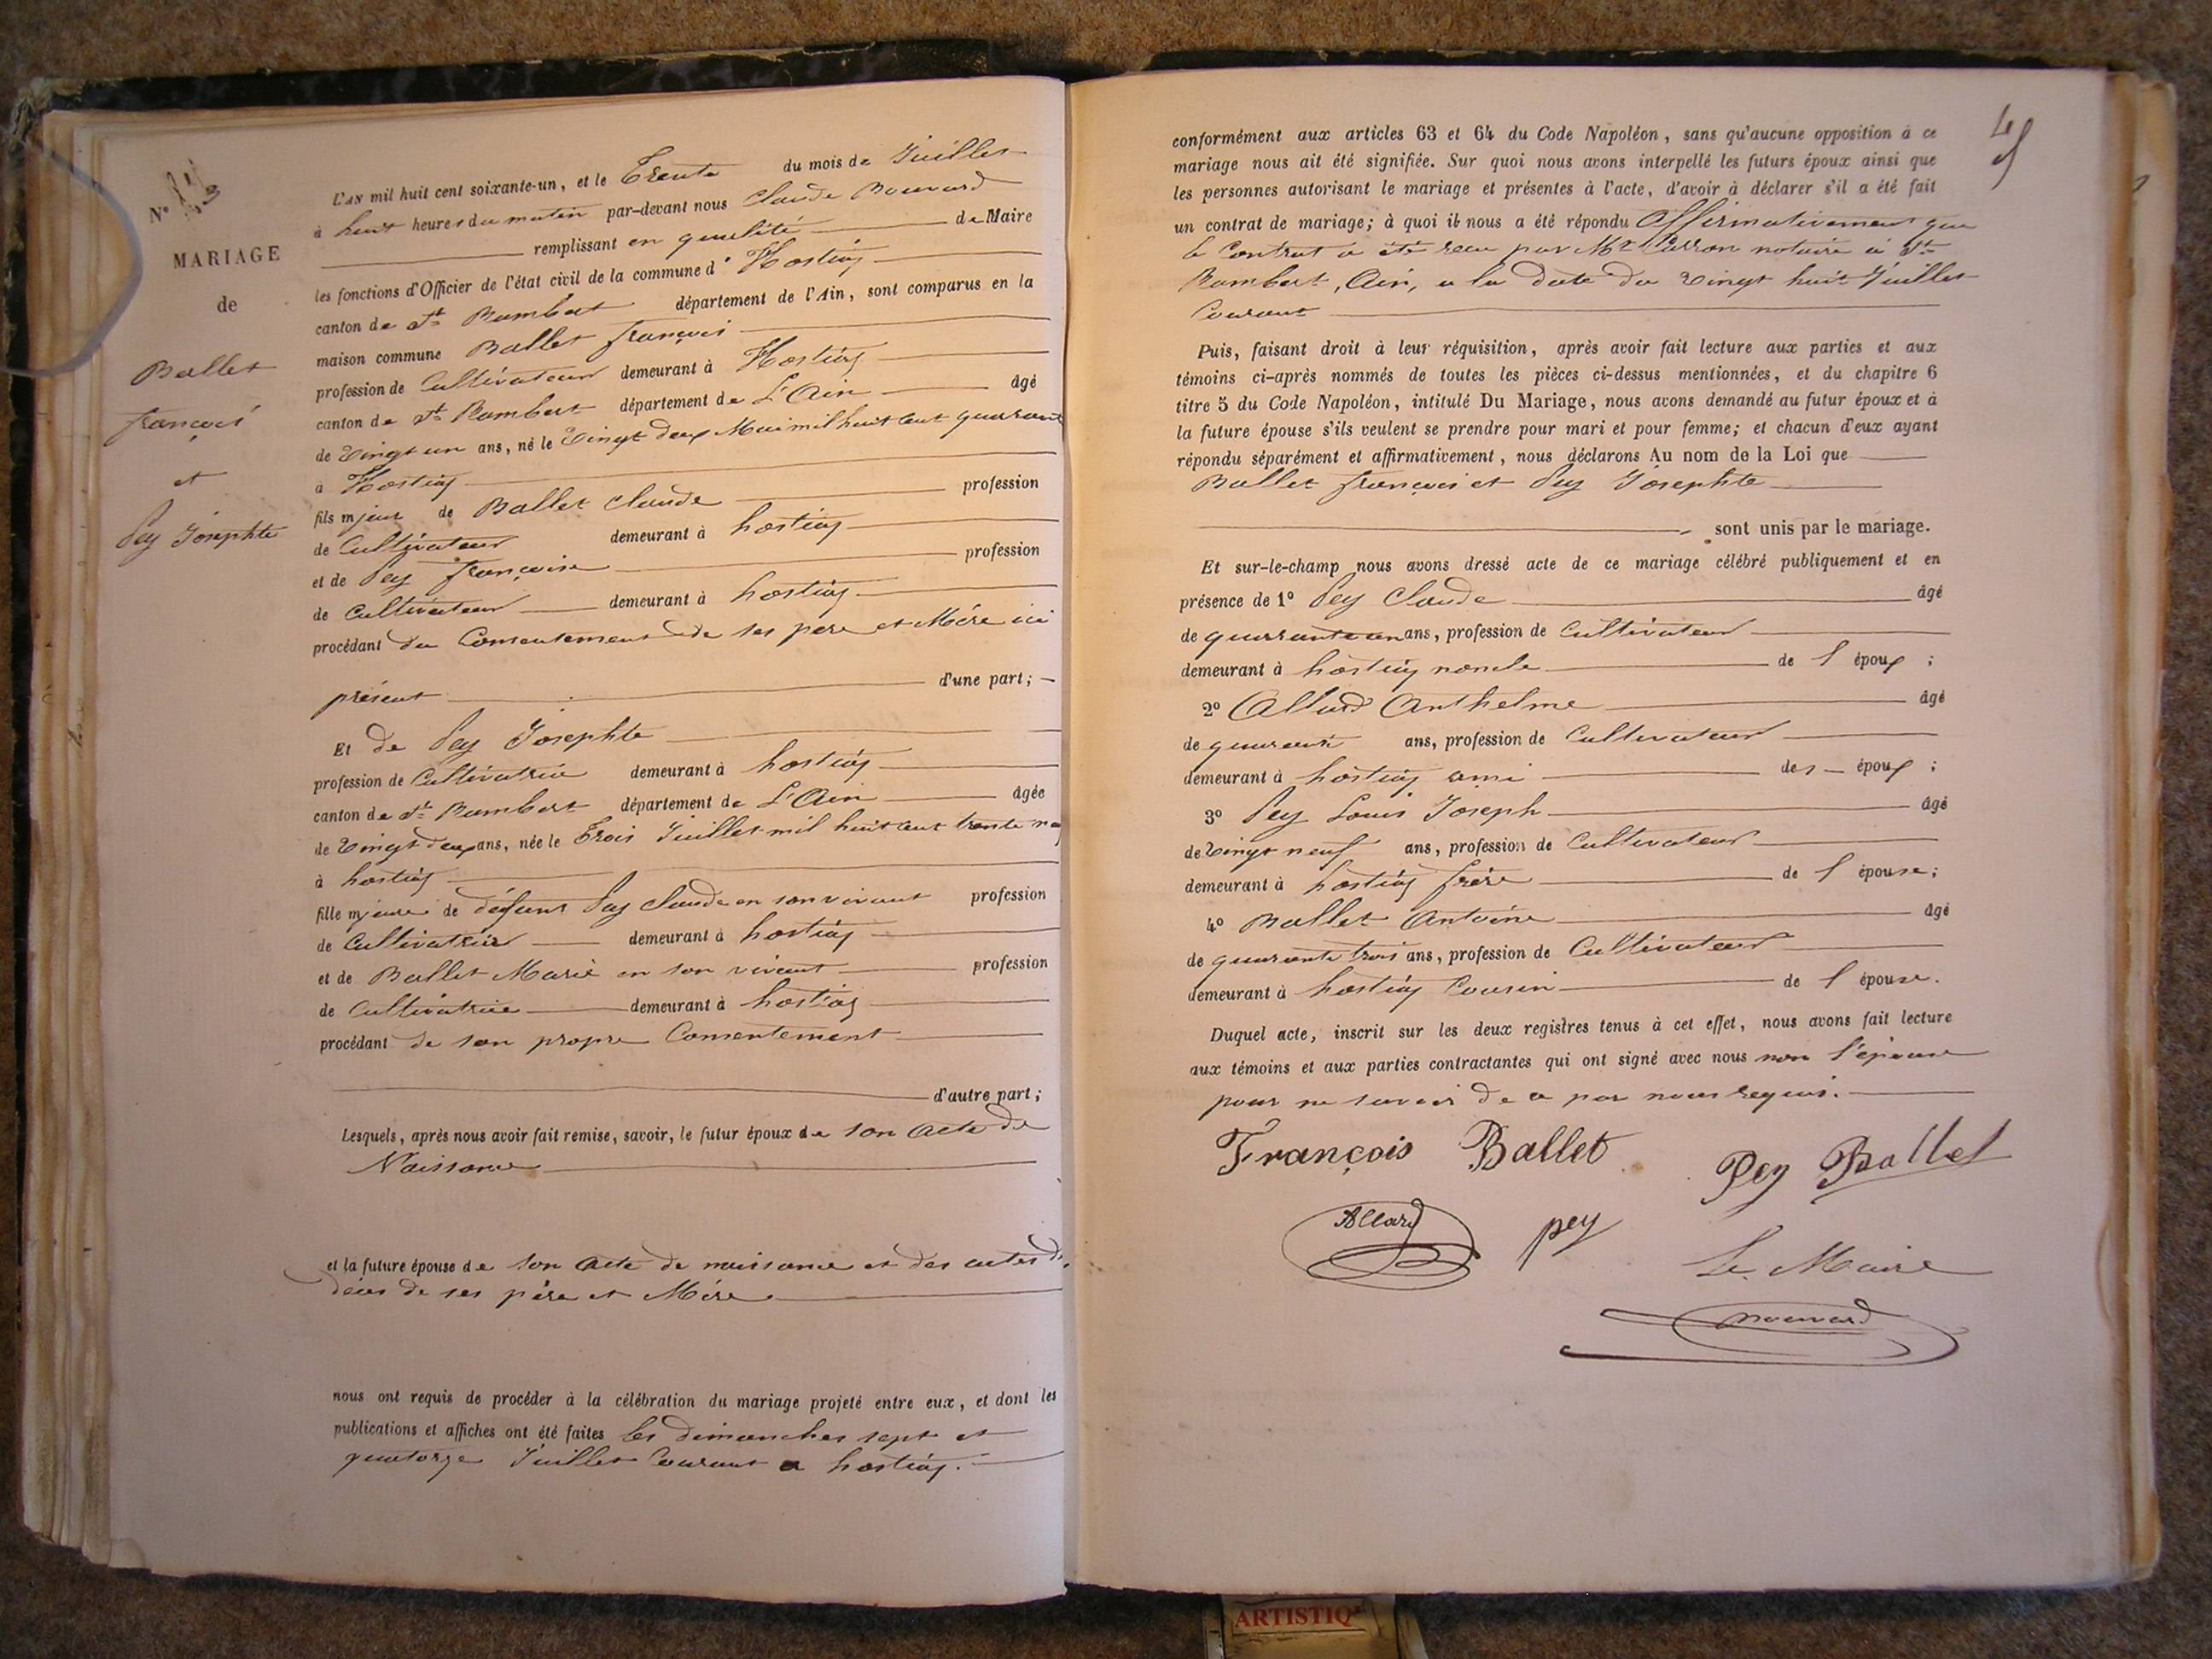 N°
MARIAGE
de
Ballet
françois
et
Pey Josephte
L'AN mil huit cent soixante-un, et le Trente du mois de Juillet
à huit heures du matin par-devant nous Claude Bouvard
remplissant en qualité de Maire
les fonctions d'Officier de l'état civil de la commune d' Hostiaz
canton de St Rambert département de l'Ain, sont comparus en la
maison commune Ballet françois
profession de Cultivateur demeurant à Hostiaz
canton de St Rambert département de L'Ain âgé
de Vingt un ans, né le Vingt deux Mai mil huit cent quarante
à Hostiaz
fils mjeur de Ballet Claude profession
de Cultivateur demeurant à hostiaz
et de Pey françoise profession
de Cultivateur demeurant à hostiaz
procédant du Consentement de ses père et Mère ici
présent d'une part;
Et de Pey Josephte
profession de Cultivatrice demeurant à hostiaz
canton de St Rambert département de L'Ain âgée
de Vingt deux ans, née le Trois Juillet mil huit cent trente
à hostiaz
fille mjeure de défunt Pey Claude en son vivant profession
de Cultivateur demeurant à hostiaz
et de Ballet Marie en son vivant profession
de Cultivatrice demeurant à hostiaz
procédant de son propre Consentement
d'autre part;
Lesquels, après nous avoir fait remise, savoir, le futur époux de son Acte de
Naissance
et la future épouse de son Acte de naissance et des actes de
décès de ses père et Mère
nous ont requis de procéder à la célébration du mariage projeté entre eux, et dont les
publications et affiches ont été faites les dimanches sept et
quatorze Juillet Courant a hostiaz.
45
conformément aux articles 63 et 64 du Code Napoléon, sans qu'aucune opposition à ce
mariage nous ait été signifiée. Sur quoi nous avons interpellé les futurs époux ainsi que
les personnes autorisant le mariage et présentes à l'acte, d'avoir à déclarer s'il a été fait
un contrat de mariage; à quoi il nous a été répondu Affirmativement que
le Contrat a été recu par Mr notaire à St
Rambert, Ain, a la date du Vingt huit Juillet
Courant
Puis, faisant droit à leur réquisition, après avoir fait lecture aux parties et aux
témoins ci-après nommés de toutes les pièces ci-dessus mentionnées, et du chapitre 6
titre 5 du Code Napoléon, intitulé Du Mariage, nous avons demandé au futur époux et à
la future épouse s'ils veulent se prendre pour mari et pour femme; et chacun d'eux ayant
répondu séparément et affirmativement, nous déclarons Au nom de la Loi que
Ballet françois et Pey Josephte
sont unis par le mariage.
Et sur-le-champ nous avons dressé acte de ce mariage célébré publiquement et en
présence de 1° Pey Claude âgé
de quarante un ans, profession de Cultivateur
demeurant à hostiaz noncle de l époux;
2° Allard Anthelme âgé
de quarante ans, profession de Cultivateur
demeurant à hostiaz ami des époux;
3° Pey Louis Joseph âgé
de Vingt neuf ans, profession de Cultivateur
demeurant à hostiaz frère de l épouse;
4° Ballet Antoine âgé
de quarante trois ans, profession de Cultivateur
demeurant à hostiaz Cousin de l épouse.
Duquel acte, inscrit sur les deux registres tenus à cet effet, nous avons fait lecture
aux témoins et aux parties contractantes qui ont signé avec nous non l'épouse
pour ne savoir de ce par nous requis.
François Ballet Pey Ballet
Allard pey
Le Maire
Bouvard
ARTISTIQ